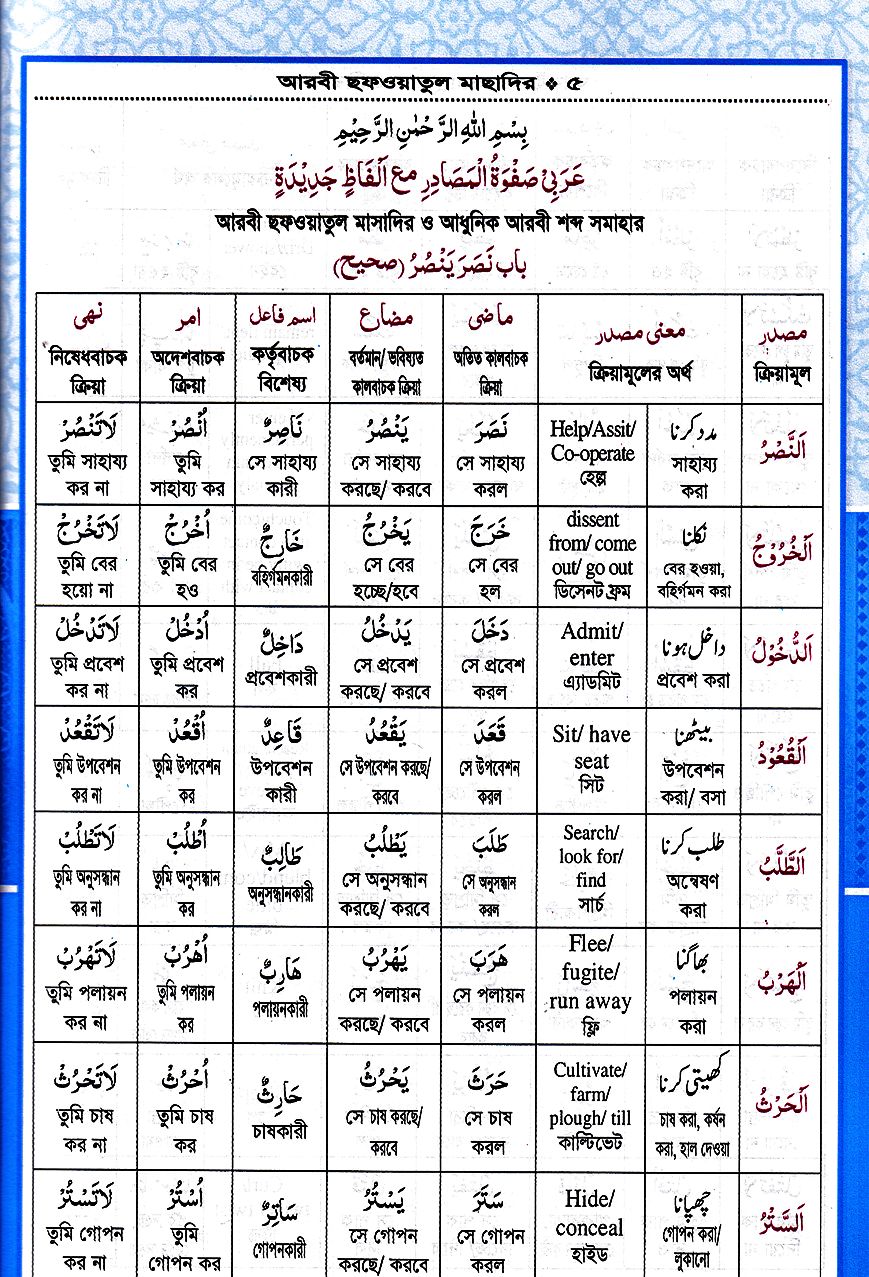 আরবী ছফওয়াতুল মাছাদির ❖ ৫
بِسْمِ اللهِ الرَّحْمٰنِ الرَّحِيْمِ
عَرَبِىْ صَفْوَةُ الْمَصَادِرِ مَعَ اَلْفَاظٍ جَدِيْدَةٍ
আরবী ছফওয়াতুল মাসাদির ও আধুনিক আরবী শব্দ সমাহার
باب نَصَرَ يَنْصُرُ (صحيح)
مصدر
ক্রিয়ামূল
معنى مصدر
ক্রিয়ামূলের অর্থ
ماضى
অতিত কালবাচক
ক্রিয়া
مضارع
বর্তমান/ ভবিষ্যত
কালবাচক ক্রিয়া
اسم فاعل
কর্তৃবাচক
বিশেষ্য
امر
অদেশবাচক
ক্রিয়া
نهى
নিষেধবাচক
ক্রিয়া
اَلنَّصْرُ
مدد کرنا
সাহায্য
করা
Help/Assit/
Co-operate
হেল্প
نَصَرَ
সে সাহায্য
করল
يَنْصُرُ
সে সাহায্য
করছে/ করবে
نَاصِرٌ
সে সাহায্য
কারী
اُنْصُرْ
তুমি
সাহায্য কর
لَاتَنْصُرْ
তুমি সাহায্য
কর না
اَلْخُرُوْجُ
نکلنا
বের হওয়া,
বহির্গমন করা
dissent
from/ come
out/ go out
ডিসেনট ফ্রম
خَرَجَ
সে বের
হল
يَخْرُجُ
সে বের
হচ্ছে/হবে
خَارِجٌ
বহির্গমনকারী
اُخْرُجْ
তুমি বের
হও
لَاتَخْرُجْ
তুমি বের
হয়ো না
اَلدُّخُوْلُ
داخل ہونا
প্রবেশ করা
Admit/
enter
এ্যাডমিট
دَخَلَ
সে প্রবেশ
করল
يَدْخُلُ
সে প্রবেশ
করছে/ করবে
دَاخِلٌ
প্রবেশকারী
اُدْخُلْ
তুমি প্রবেশ
কর
لَاتَدْخُلْ
তুমি প্রবেশ
কর না
اَلْقُعُوْدُ
بیٹھنا
উপবেশন
করা/ বসা
Sit/ have
seat
সিট
قَعَدَ
সে উপবেশন
করল
يَقْعُدُ
সে উপবেশন করছে/
করবে
قَاعِدٌ
উপবেশন
কারী
اُقْعُدْ
তুমি উপবেশন
কর
لَاتَقْعُدْ
তুমি উপবেশন
কর না
اَلطَّلَبُ
طلب کرنا
অন্বেষণ
করা
Search/
look for/
find
সার্চ
طَلَبَ
সে অনুসন্ধান
করল
يَطْلُبُ
সে অনুসন্ধান
করছে/ করবে
طَالِبٌ
অনুসন্ধানকারী
اُطْلُبْ
তুমি অনুসন্ধান
কর
لَاتَطْلُبْ
তুমি অনুসন্ধান
কর না
اَلْهَرْبُ
بھاگنا
পলায়ন
করা
Flee/
fugite/
run away
ফ্লি
هَرَبَ
সে পলায়ন
করল
يَهْرُبُ
সে পলায়ন
করছে/ করবে
هَارِبٌ
পলায়নকারী
اُهْرُبْ
তুমি পলায়ন
কর
لَاتَهْرُبْ
তুমি পলায়ন
কর না
اَلْحَرْثُ
کھیتی کرنا
চাষ করা, কর্ষন
করা, হাল দেওয়া
Cultivate/
farm/
plough/ till
কাল্টিভেট
حَرَثَ
সে চাষ
করল
يَحْرُثُ
সে চাষ করছে/
করবে
حَارِثٌ
চাষকারী
اُحْرُثْ
তুমি চাষ
কর
لَاتَحْرُثْ
তুমি চাষ
কর না
اَلسَّتْرُ
چھپانا
গোপন করা/
লুকানো
Hide/
conceal
হাইড
سَتَرَ
সে গোপন
করল
يَسْتُرُ
সে গোপন
করছে/ করবে
سَاتِرٌ
গোপনকারী
اُسْتُرْ
তুমি
গোপন কর
لَاتَسْتُرْ
তুমি গোপন
কর না